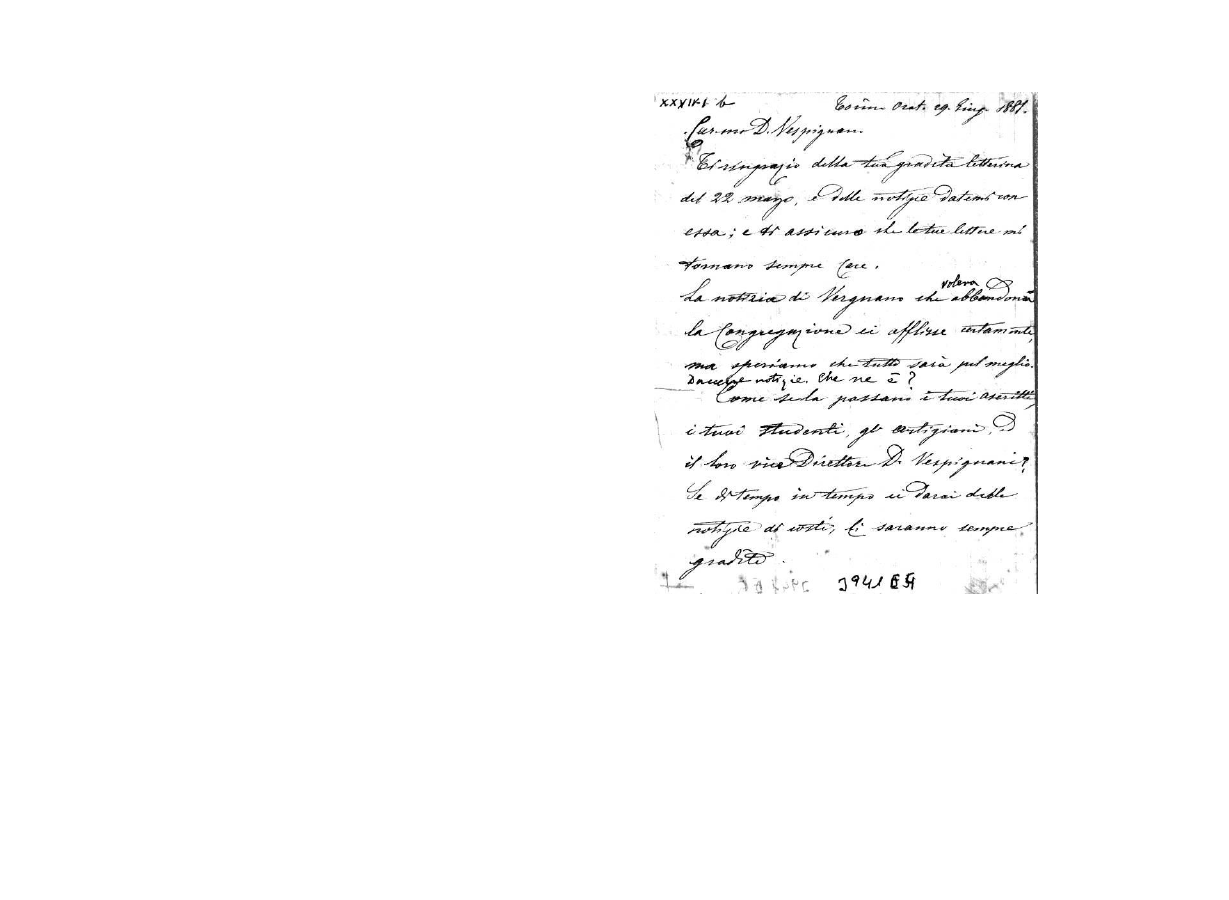 XXXIV-1 b Torino Orat. 29. Giug. 1881.
Car.mo D. Vespignan.
Ti ringrazio della tua gradita letterina
del 22 marzo, e delle notizie datemi con
essa; e ti assicuro che le tue lettere mi
tornano sempre care.
voleva
La notizia di Vergnano che abbandonar
la Congregazione ci afflisse certamente,
ma speriamo che tutto sarà pel meglio.
Daccene notizie. Che ne è?
Come se la passano i tuoi ascritti,
i tuoi studenti, gli artigiani, e
il loro vice Direttore D. Vespignani?
Se di tempo in tempo ci darai delle
notizie di costì, ci saranno sempre
gradite.